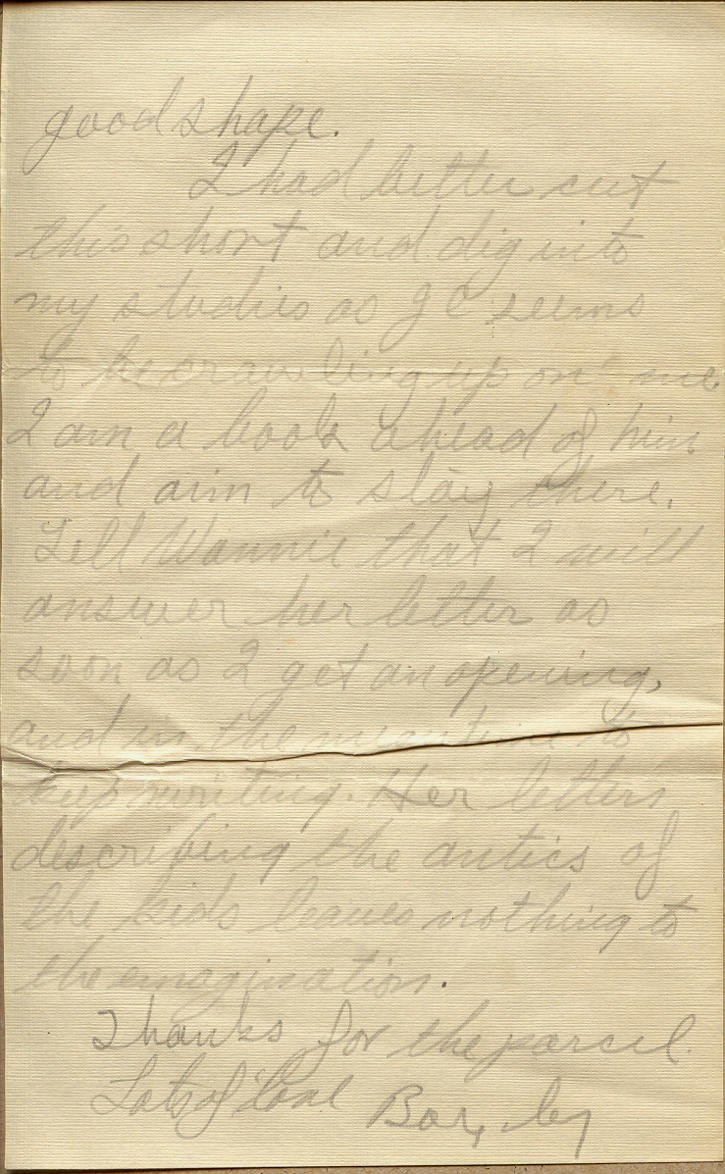 good shape.
I had better cut
this short and dig into
my studies as J C seems
to be crawling up on me
I am a book ahead of him
and aim to stay there.
Tell Wannie that I will
answer her letter as
soon as I get an opening,
and in the meantime to
keep writing. Her letters
describing the antics of
the kids leaves nothing to
the emagination.
Thanks for the parcel.
Lots of Love